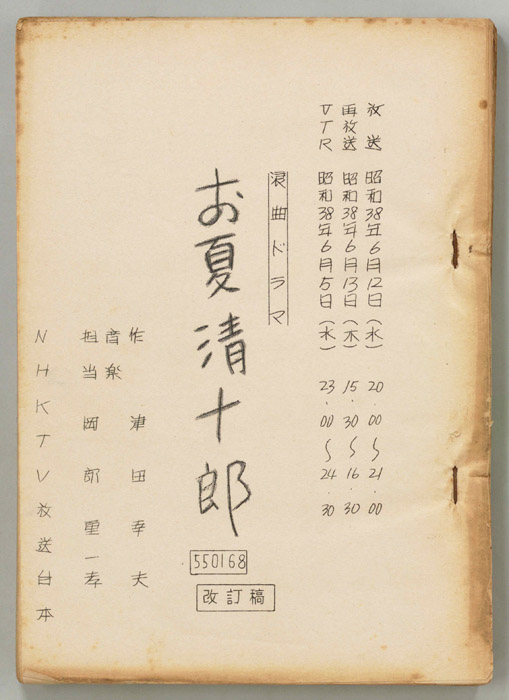 放送 昭和38年6月12日(水) 20.00~21.00
再放送 昭和38年6月13日(木) 15.30~16.30
VTR 昭和38年6月5日(水) 23.00~24.30
浪曲ドラマ
お夏清十郎
550168
改訂稿
作 津田幸夫
音楽
担当 岡部重一孝
NHKTV放送台本